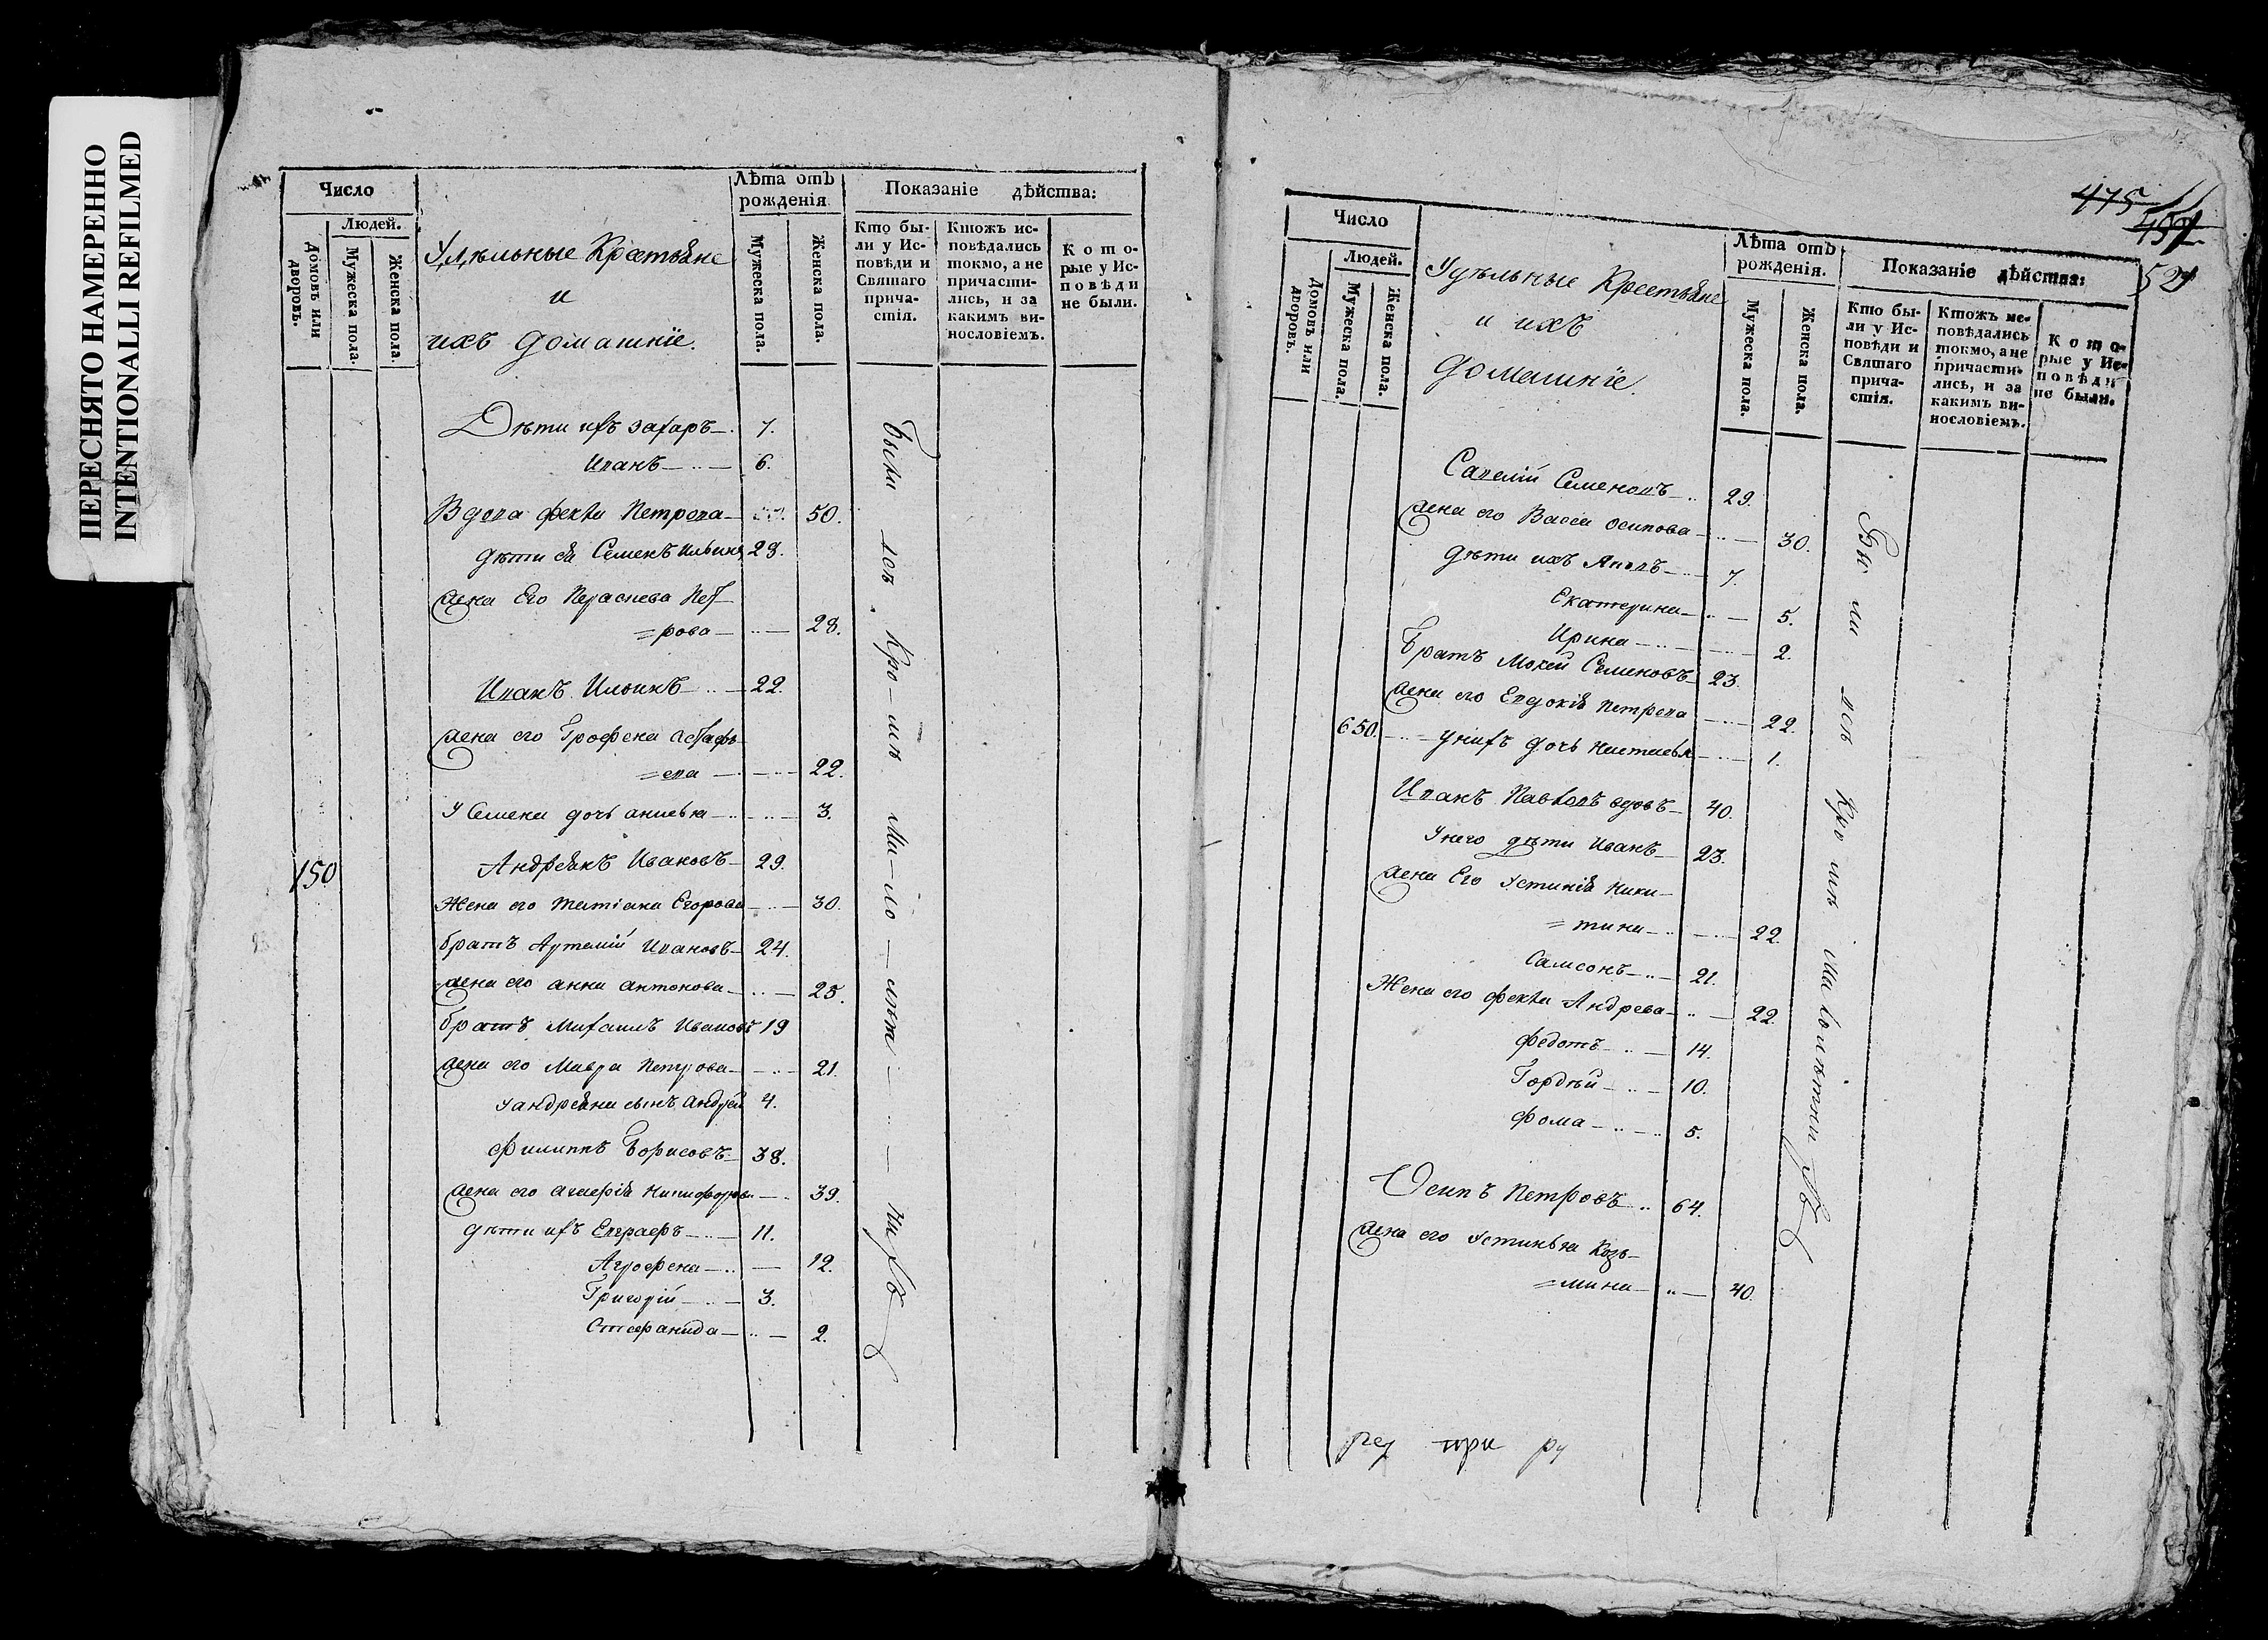 ПЕРЕСНЯТО НАМЕРЕННО
INTENTIONALLI REFILMED
Число
Людей.
Домовъ или дворовъ.
Мужеска пола.
Женска пола.
Удѣльные Крестьяне
и
ихъ домашніе.
Лѣта отъ рожденія
Мужеска пола.
Женска пола.
Показаніе дѣйства:
Кто бы-
ли у Ис-
повѣди и
Святаго
прича-
стія.
Ктожъ ис-
повѣдались
токмо, а не
причасти-
лись, и за
какимъ ви-
нословіемъ.
Кото-
рые у Ис-
повѣди
не были.
Дѣти ихъ Захаръ 7.
Иванъ 6.
Вдова Фекла Петрова 50.
дѣти ея Семенъ Ильинъ 28.
жена Его Параскева Пет
=рова 28.
Иванъ Ильинъ 22.
жена его Грофена Астафь
=ева 22.
У Семена дочь
3.
150
Андреянъ Ивановъ 29.
Жена его Татіана Егорова 30.
братъ Артемій Ивановъ 24.
жена его Анна Антонова 25.
братъ Михаилъ Ивановъ 19
жена его Мавра Петрова 21.
у Андреяна сынъ Андрей 4.
Филиппъ Борисовъ 38.
жена его Никифорова 39.
дѣти ихъ Евграфъ 11.
Агрофена 12.
Григорій 3.
Стефанида 2.
были всѣ Кро-мѣ Ма-ло-лѣт-ни хъ
475
527
Число
Людей.
Домовъ или дворовъ.
Мужеска пола.
Женска пола.
Удѣльные Крестьяне
и ихъ
домашніе.
Лѣта отъ рожденія.
Мужеска пола.
Женска пола.
Показаніе дѣйства:
Кто бы-
ли у Ис-
повѣди и
Святаго
прича-
стія.
Ктожъ ис-
повѣдались
токмо, а не
причасти-
лись, и за
какимъ ви-
нословіемъ.
Кото-
рые у Ис-
повѣди
не были.
Савелій Семеновъ 29.
жена его Васса Осипова 30.
дѣти ихъ 7.
Екатерина 5.
Ирина 2.
Братъ Мокей Семеновъ 23.
жена его Евдокія Петрова 22.
650. у нихъ дочь Настасья 1.
Иванъ Павловъ вдовъ 40.
У него дѣти Иванъ 23.
жена Его Устинія Ники-
=тина 22.
Самсонъ 21.
Жена его Фекла Андрева 22.
Федотъ 14.
Гордѣй 10.
Фома 5.
Осипъ Петровъ 64.
жена его Устинья Козь-
=мина 40.
Бы ли всѣ Кро мѣ Малолѣтни хъ
при ру